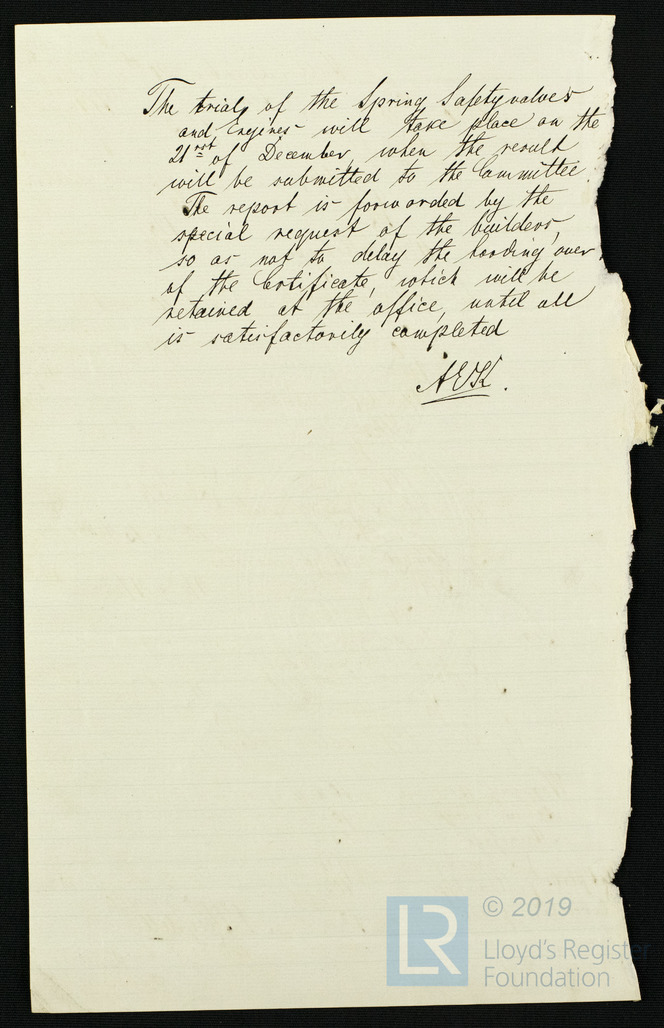 The trials of the Spring Safetyvalves
and Engines will take place on the
21rst of December, when the result
will be submitted to the Committee.
The report is forwarded by the
special request of the builders,
so as not to delay the handing over
of the Certificate, which will be
retained at the office, until all
is satisfactorily completed
© 2019
LR
Lloyd's Register
Foundation